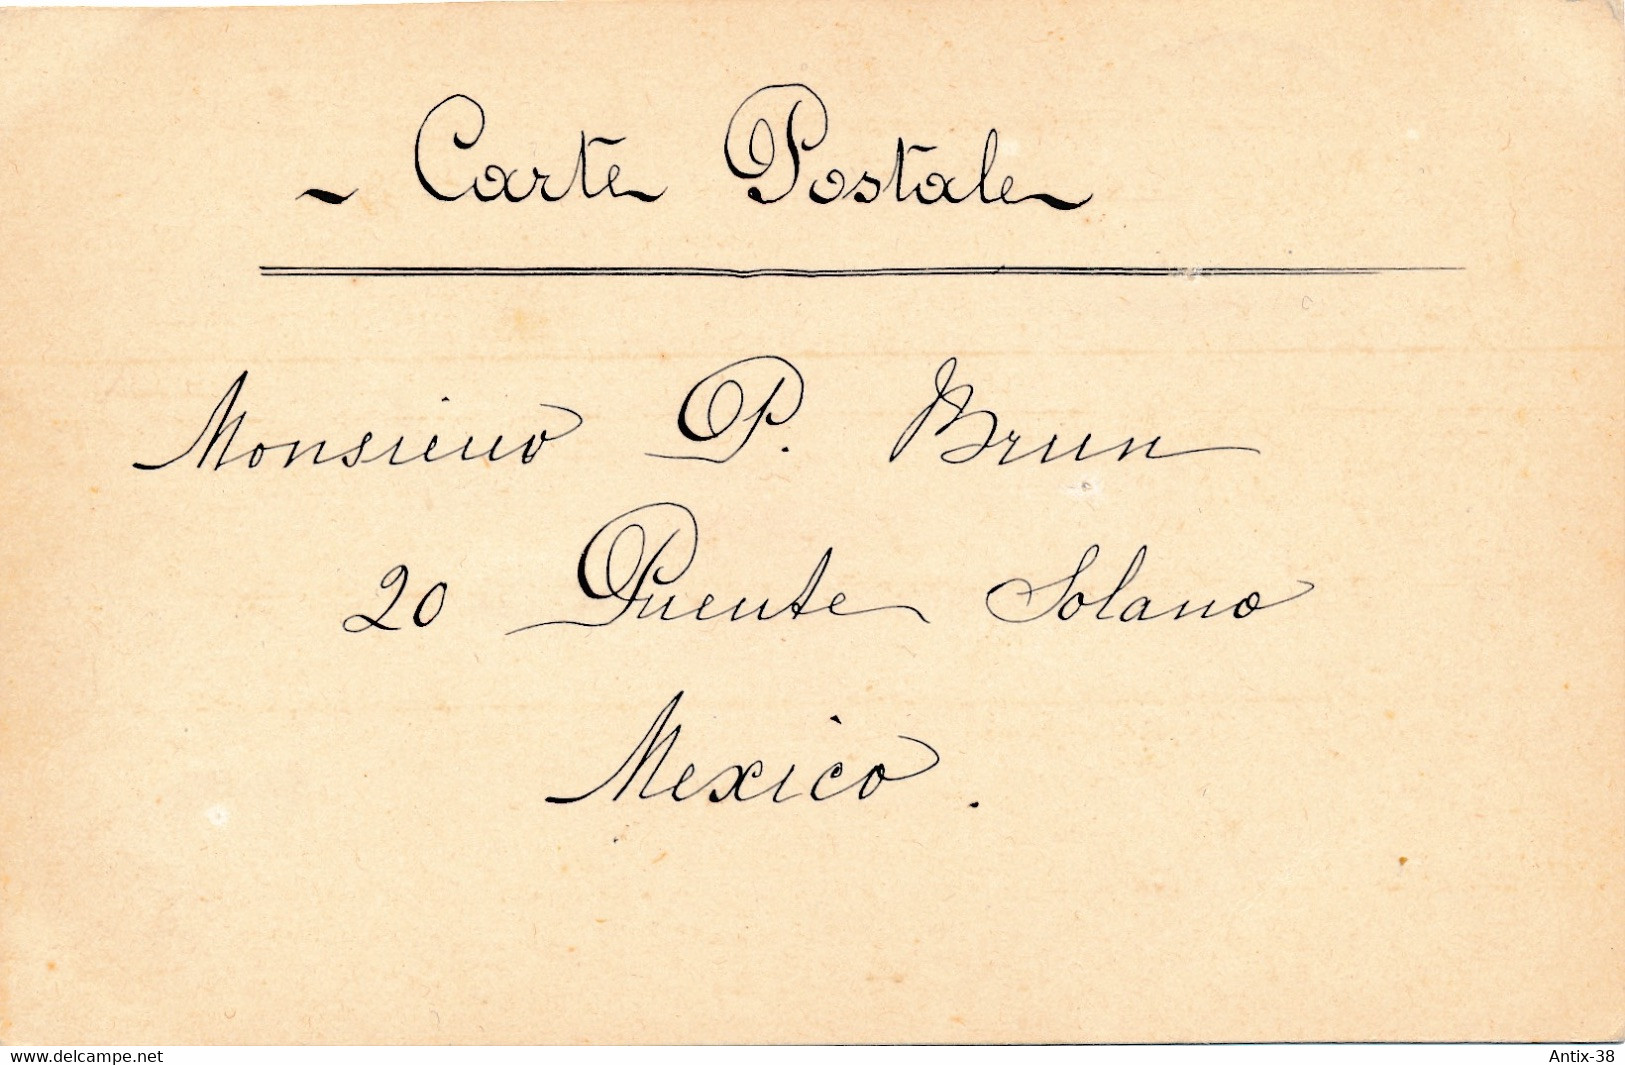 ~ Carte Postale
Monsieur P. Brun
20 Puente Solano
Mexico.
www.delcampe.net
Antix-38